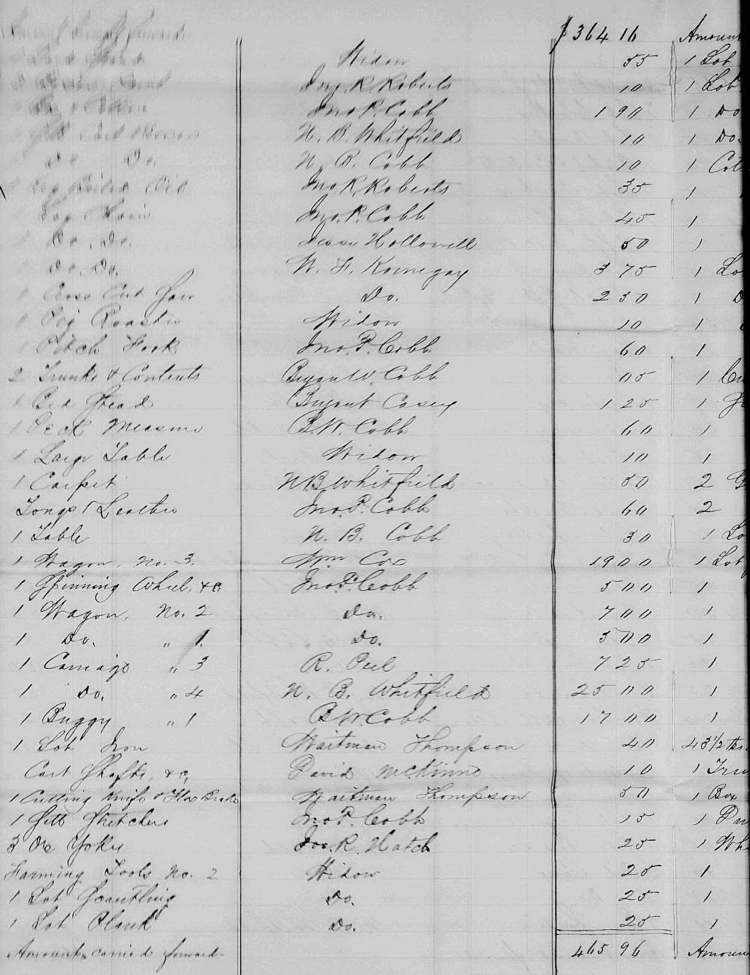 forward $364 16 Amount
Widow 55 1 Lot
Jno. R. Roberts 10 1 Lot
Jno. P. Cobb 1 90 1 Do
N. B. Whitfield 10 1 Do.
Do Do. N. B. Cobb 10 1
Oil Jno. R. Roberts 35 1
1 Log Chain Jno. P. Cobb 45 1
1 Do. Do. Jesse Hollowell 50 1
1 Do. Do. W. F. Kornegay 3 75 1 Lo
1 Cross Cut Saw Do. 2 50 1 D
1 Pig Roaster Widow 10 1
1 Pitch Fork Jno. P. Cobb 60 1
2 Trunks & Contents Bryan W. Cobb 05 1
1 Bed Stead Bryant Casey 1 25 1
1 Peck Measure B. W. Cobb 60 1
1 Large Table Widow 10 1
1 Carpet N. B. Whitfield 50 2
Tongs & Leather Jno. P. Cobb 60 2
1 Table N. B. Cobb 30 1 Lo
1 Wagon, No. 3. Wm Cox 19 00 1 Lot
1 Spinning Wheel, &c Jno. P. Cobb 5 00 1
1 Wagon, No. 2 Do. 7 00 1
1 Do. " 1. Do. 5 00 1
1 Carriage " 3 R. Peel 7 25 1
1 Do, " 4 N. B. Whitfield 25 00 1
1 Buggy " 1 B. W. Cobb 17 00 1
1 Lot Iron Waitman Thompson 40 4 3 1/2
Cart Shafts, &c, David McKinne 10 1 Tru
1 Cutting Knife & Flax Brake Waitman Thompson 50 1 Box
1 Stretchers Jno. P. Cobb 15 1
3 Ox Yokes Jos. R. Hatch 25 1 Wh
Farming Tools No. 2 Widow 25 1
1 Lot Scantling Do. 25 1
1 Lot Plank Do. 25 1
Amount carried forward 465 96 Amoun